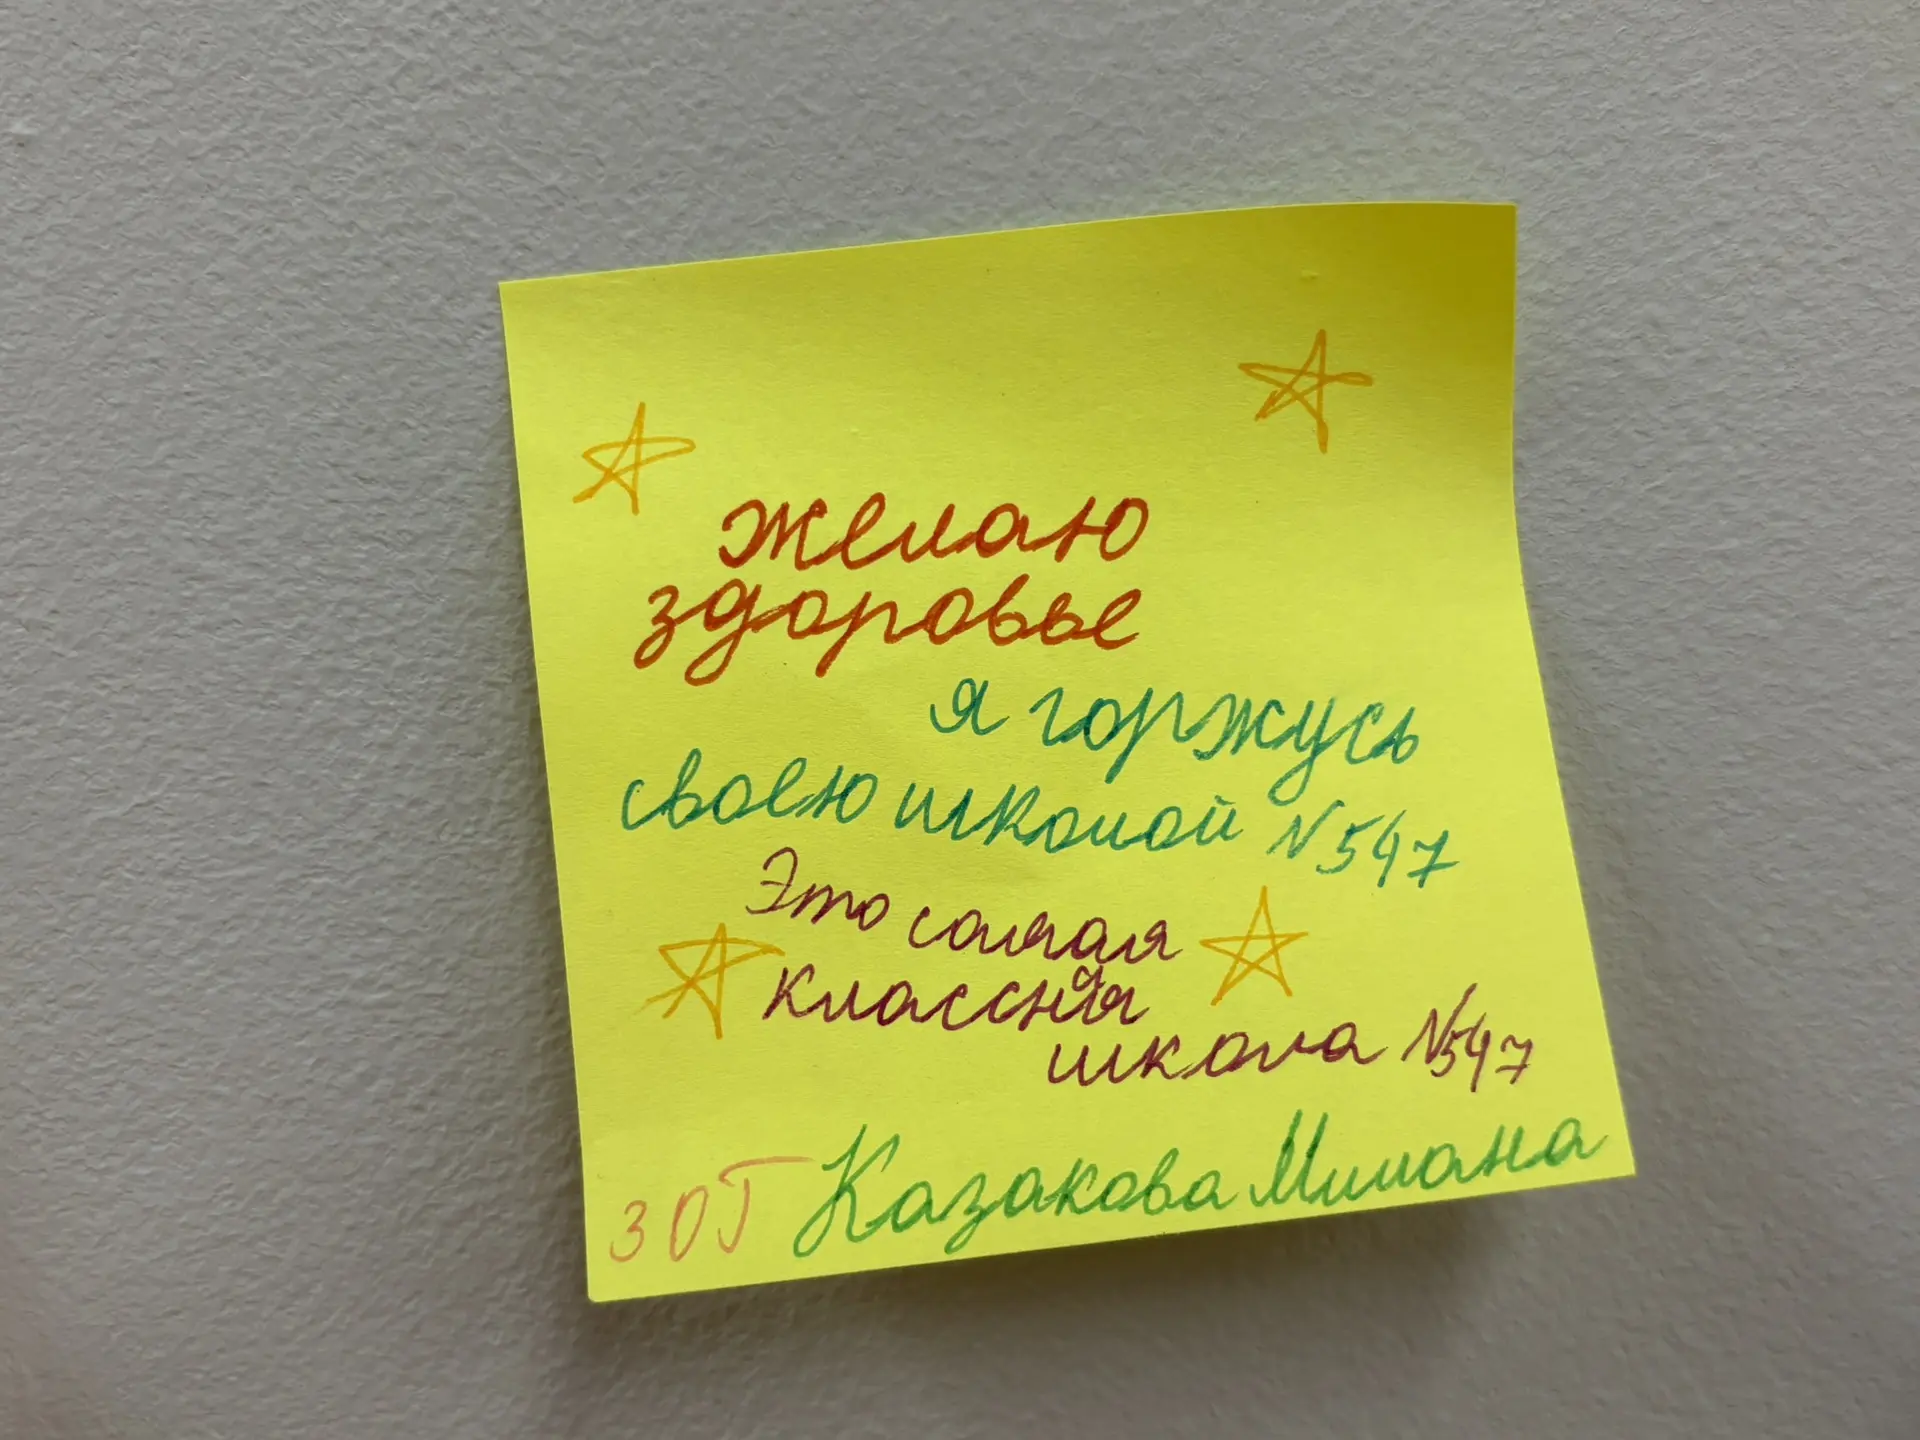 желаю
здоровье
я горжусь
своею школой N547
Это самая
классная
школа N547
3 ОТ Казакова Милана